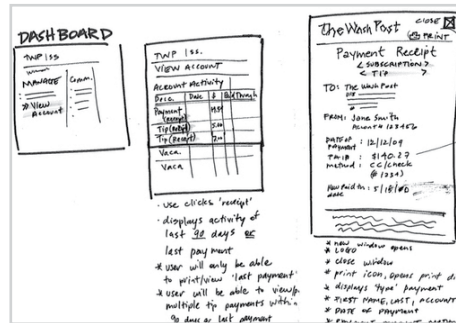 DASHBOARD
TWP ISS
MANAGE
Comm.
* View
Account
TWP Iss.
VIEW ACCOUNT
ACCOUNT Activity
Desc. Date $
Payment
(receipt)
Tip (receipt) 5.00
Tip (receipt)
Vaca.
Vaca
· use clicks 'receipt'
· displays activity of
last 90 days or
last payment
* user will only be able
to print/view 'last payment'
* user will be able to view/p
multiple tip payments within
90 days or last payment
CLOSE X
The Wash Post
PRINT
Payment Receipt
< SUBSCRIPTION >
< TIP >
TO: The Wash Post
FROM: Jane Smith
Account # 123456
DATE OF
payment : 12/12/09
: $140.27
method : CC/check
@ 1234)
date
* new window opens
* LOGO
* close window
* print icon, opens print d
* displays 'type' payment
* FIRST NAME, LAST, ACCOUNT
* DATE OF PAYMENT